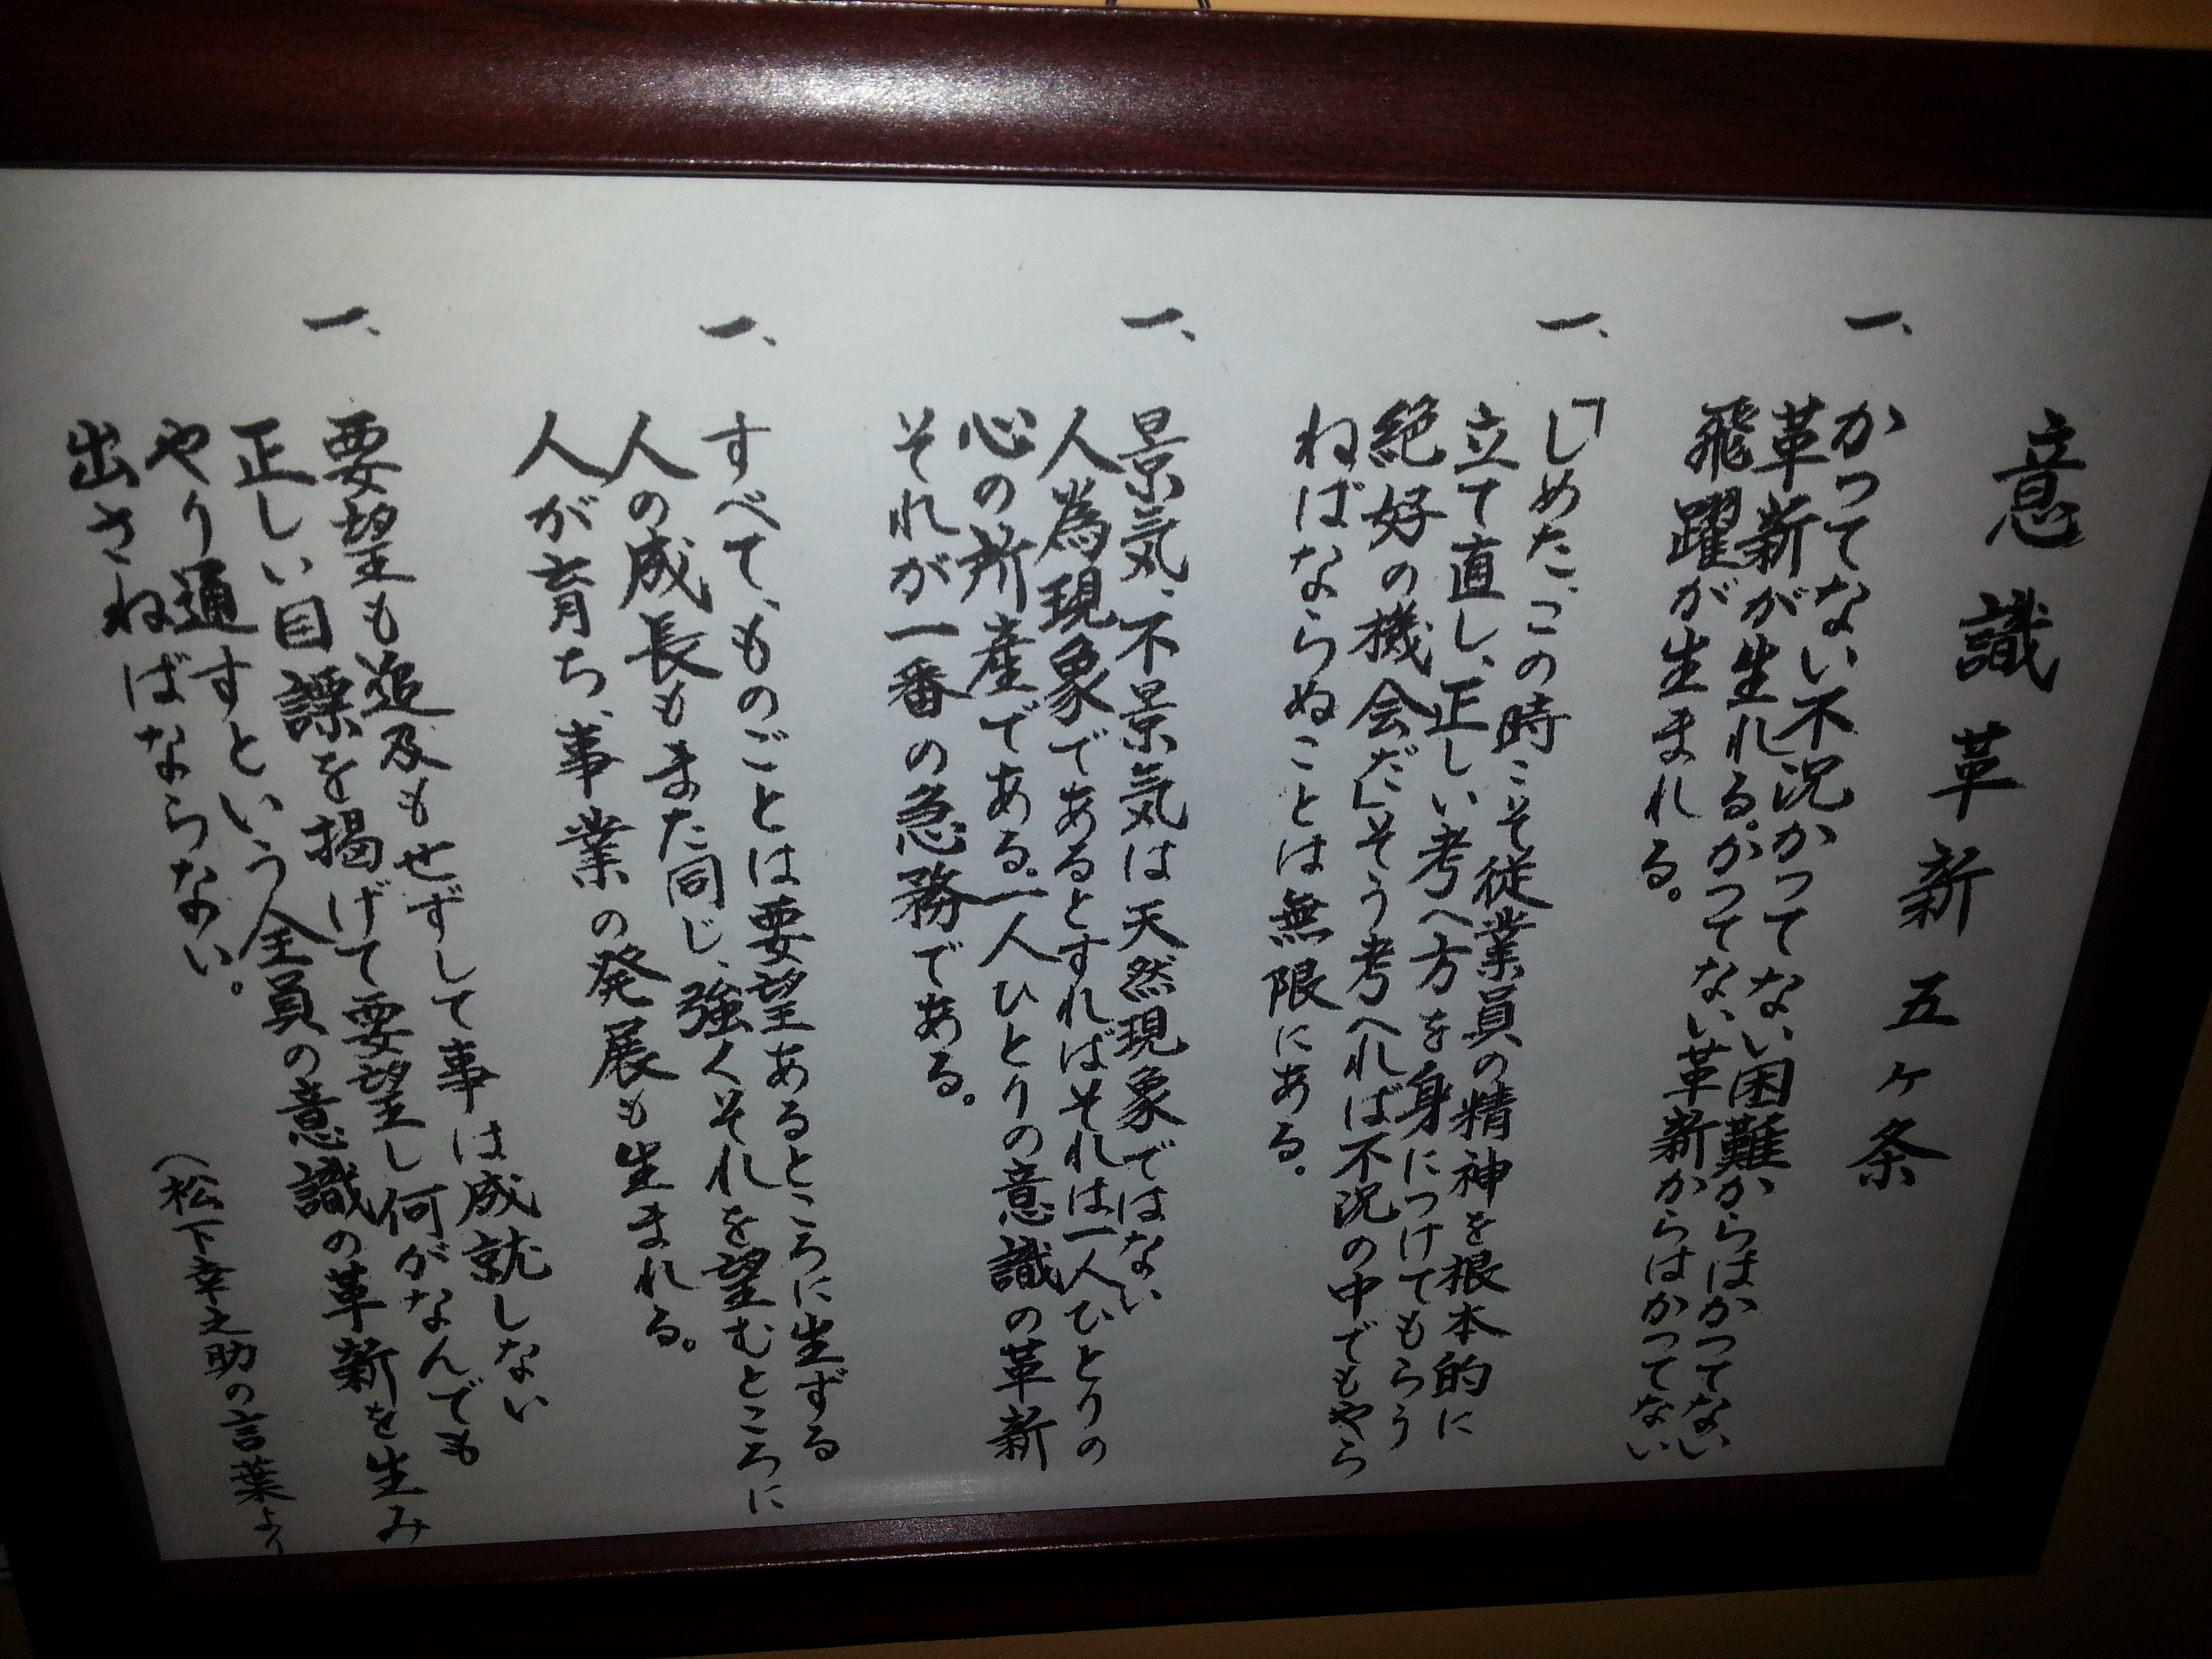 意識革新五ヶ条
一、かつてない不況かつてない困難からはかつてない
革新が生れる。かつてない革新からはかつてない
飛躍が生まれる。
一、「しめた、この時こそ従業員の精神を根本的に
立て直し、正しい考へ方を身につけてもらう
絶好の機会だ」そう考へれば不況の中でもやら
ねばならぬことは無限にある。
一、景気、不景気は天然現象ではない
人為現象であるとすればそれは一人ひとりの
心の所産である。一人ひとりの意識の革新
それが一番の急務である。
一、すべて、ものごとは要望あるところに生ずる
人の成長もまた同じ、強くそれを望むところに
人が育ち、事業の発展も生まれる。
一、要望も追及もせずして事は成就しない
正しい目標を掲げて要望し何がなんでも
やり通すという全員の意識の革新を生み
出さねばならない。
(松下幸之助の言葉より